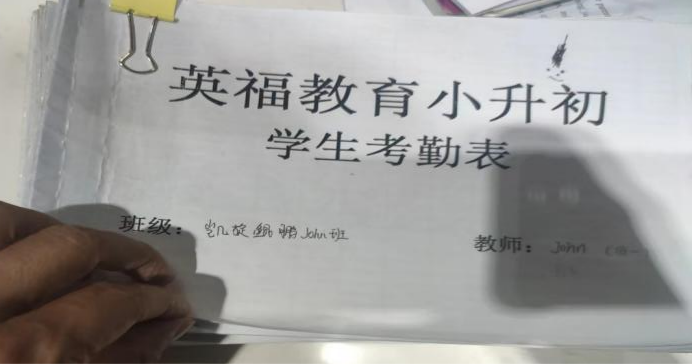 英福教育小升初
学生考勤表
班级：凯旋鲲鹏John班
教师：John